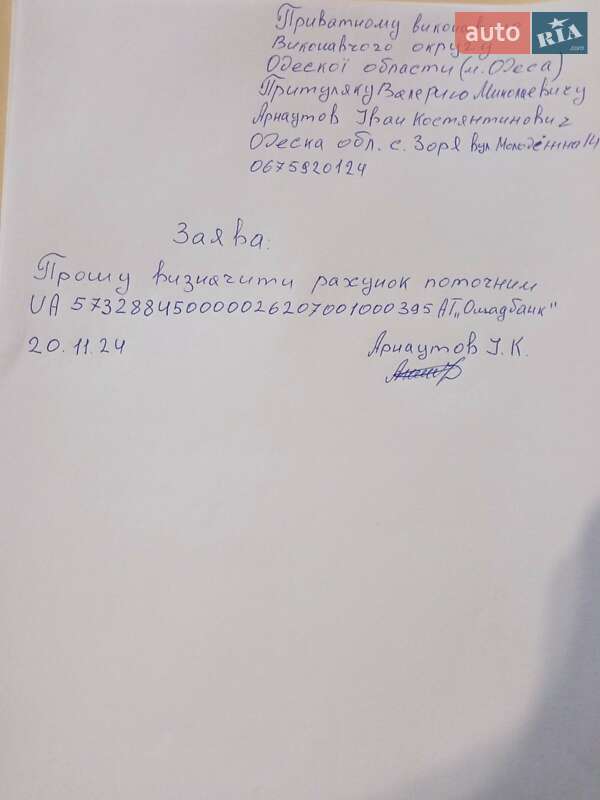 Приватному виконавцю
Виконавчого округу
Одескої области (м. Одеса)
Притуляку Валерию Миколаевичу
Арнаутов Іван Костянтинович
Одеска обл. с. Зоря вул Молодёжна 14
0675920124
Заява:
Прошу визначити рахунок поточним
UA 573288450000026207001000395 АТ„Ощадбанк"
20.11.24
Арнаутов І. К.
auto RIA .com